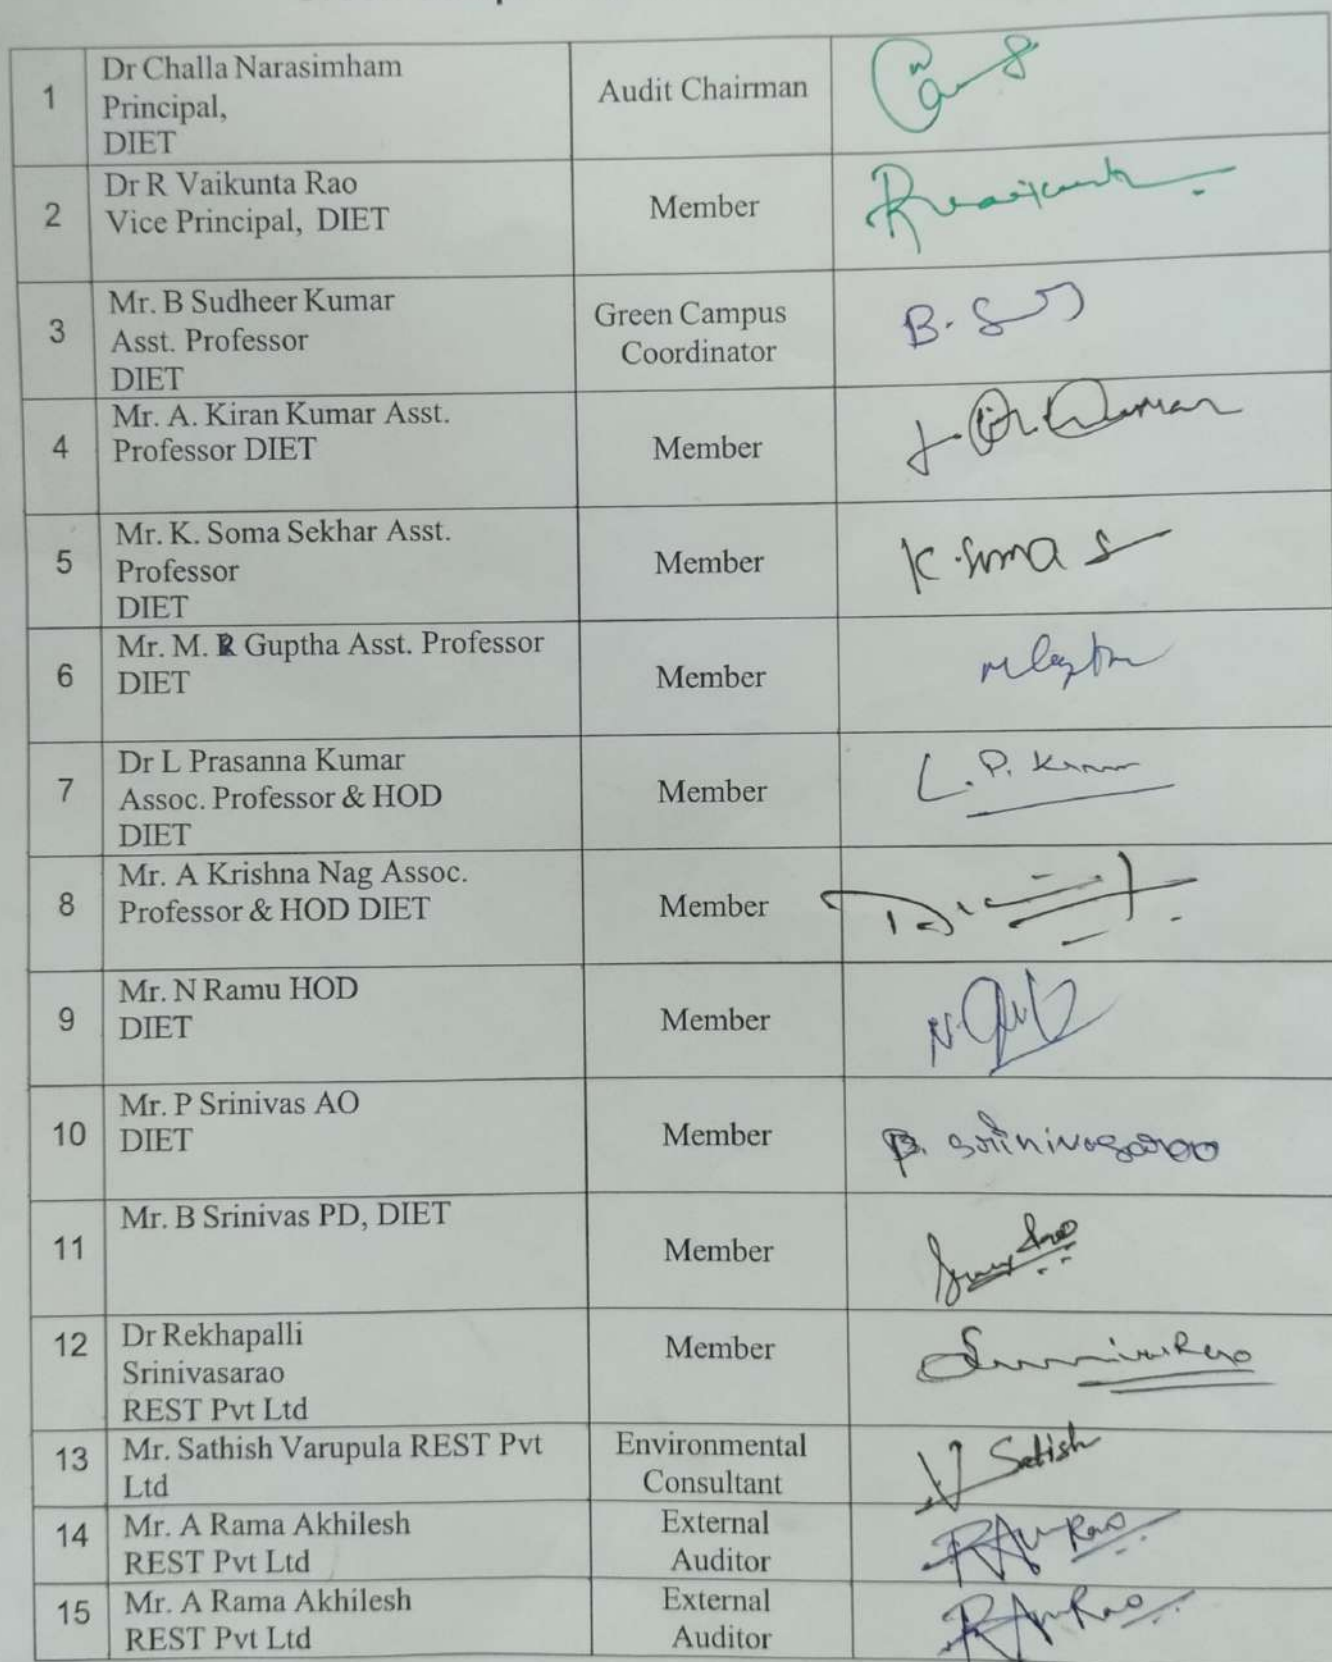 1
Dr Challa Narasimham
Principal,
DIET
Audit Chairman
2
Dr R Vaikunta Rao
Vice Principal, DIET
Member
3
Mr. B Sudheer Kumar
Asst. Professor
DIET
Green Campus
Coordinator
B.
4
Mr. A. Kiran Kumar Asst.
Professor DIET
Member
5
Mr. K. Soma Sekhar Asst.
Professor
DIET
Member
K. Soma S
6
Mr. M. R Guptha Asst. Professor
DIET
Member
7
Dr L Prasanna Kumar
Assoc. Professor & HOD
DIET
Member
L. P. Kumar
8
Mr. A Krishna Nag Assoc.
Professor & HOD DIET
Member
9
Mr. N Ramu HOD
DIET
Member
N.
10
Mr. P Srinivas AO
DIET
Member
P. Srinivasarao
11
Mr. B Srinivas PD, DIET
Member
12
Dr Rekhapalli
Srinivasarao
REST Pvt Ltd
Member
13
Mr. Sathish Varupula REST Pvt
Ltd
Environmental
Consultant
V Satish
14
Mr. A Rama Akhilesh
REST Pvt Ltd
External
Auditor
15
Mr. A Rama Akhilesh
REST Pvt Ltd
External
Auditor